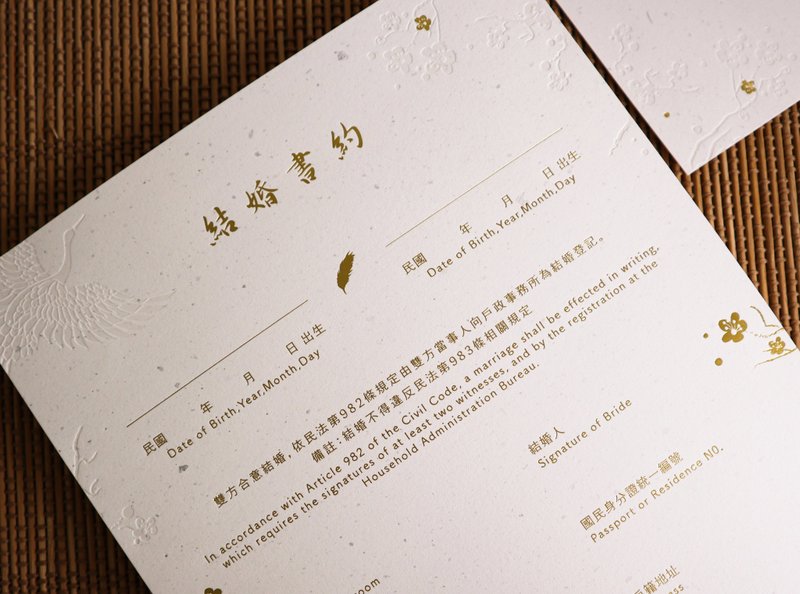 結婚書約
民國 年 月 日 出生
Date of Birth,Year,Month,Day
民國 年 月 日 出生
Date of Birth,Year,Month,Day
雙方合意結婚，依民法第982條規定由雙方當事人向戶政事務所為結婚登記。
備註：結婚不得違反民法第983條相關規定
In accordance with Article 982 of the Civil Code, a marriage shall be effected in writing,
which requires the signatures of at least two witnesses, and by the registration at the
Household Administration Bureau.
結婚人
Signature of Bride
國民身分證統一編號
Passport or Residence NO.
room
戶籍地址
ess